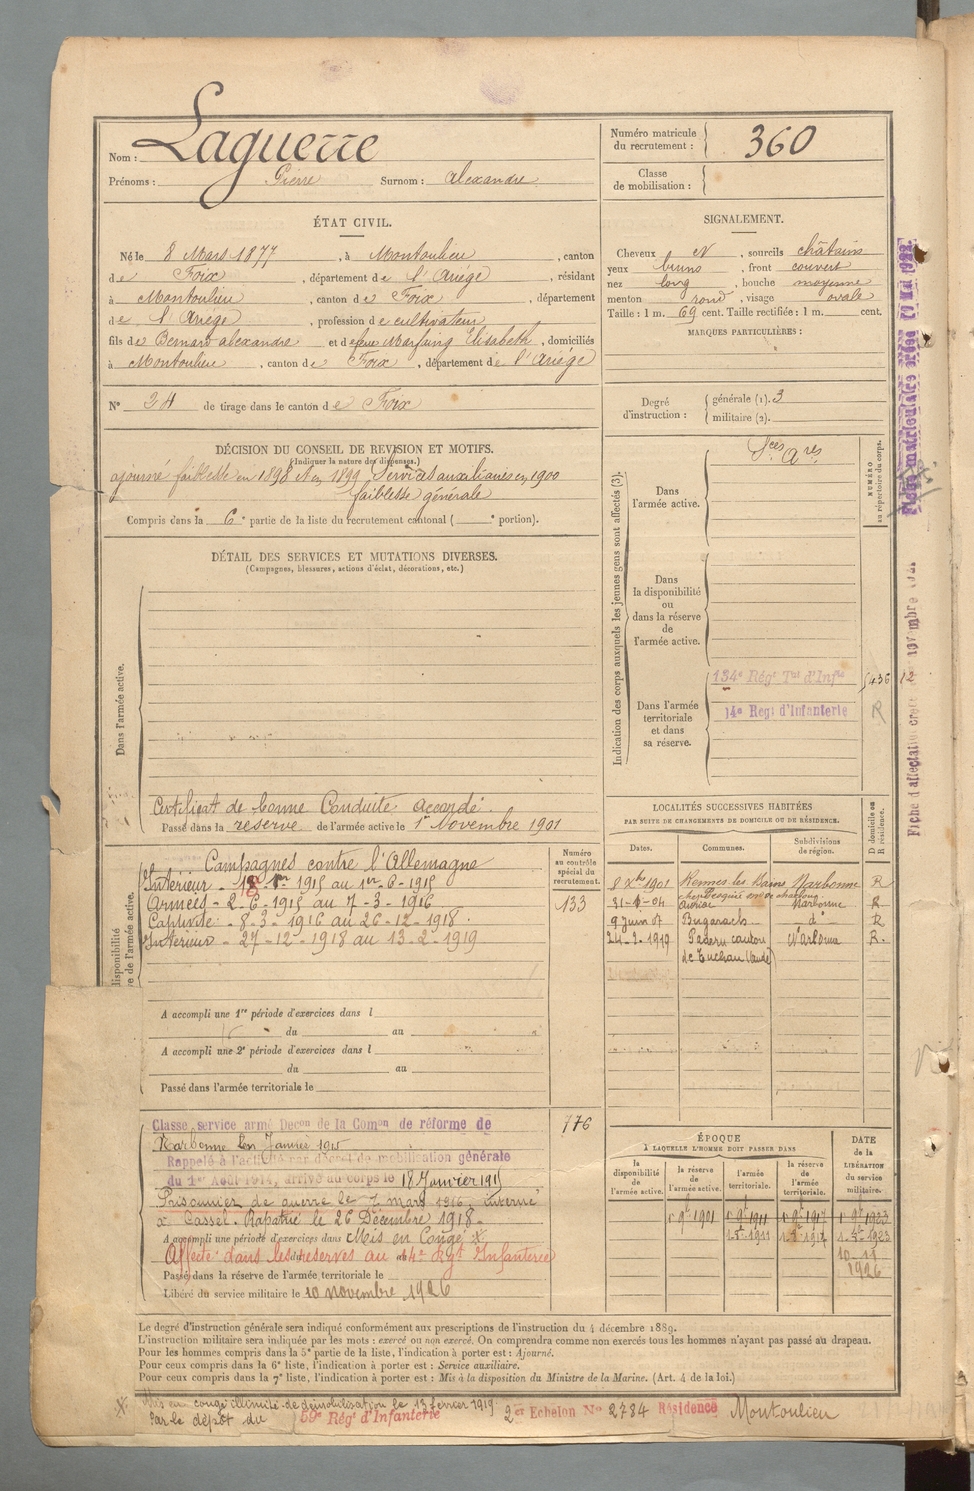 Nom : Laguerre
Prénoms : Pierre Surnom : Alexandre
Numéro matricule du recrutement : 360
Classe de mobilisation :
ÉTAT CIVIL.
Né le 8 Mars 1877, à Montoulieu, canton
de Foix, département de l'Ariège, résidant
à Montoulieu, canton de Foix, département
de l'Ariège, profession de cultivateur
fils de Bernard Alexandre et de feue Marfaing Elisabeth, domiciliés
à Montoulieu, canton de Foix, département de l'Ariège
N° 24 de tirage dans le canton de Foix
SIGNALEMENT.
Cheveux N, sourcils châtains
yeux bruns, front couvert
nez long, bouche moyenne
menton rond, visage ovale
Taille : 1 m. 69 cent. Taille rectifiée : 1 m. cent.
MARQUES PARTICULIÈRES :
Degré d'instruction : générale (1). 3
militaire (2).
DÉCISION DU CONSEIL DE REVISION ET MOTIFS.
(Indiquer la nature des dispenses.)
ajourné faiblesse en 1898 et en 1899 Services auxiliaires en 1900
faiblesse générale
Compris dans la 6e partie de la liste du recrutement cantonal ( e portion).
DÉTAIL DES SERVICES ET MUTATIONS DIVERSES.
(Campagnes, blessures, actions d'éclat, décorations, etc.)
Dans l'armée active.
Certificat de bonne Conduite accordé.
Passé dans la réserve de l'armée active le 1er Novembre 1901
Indication des corps auxquels les jeunes gens sont affectés (3).
NUMÉRO au répertoire du corps.
Dans l'armée active.
Sces Ares
Dans la disponibilité ou dans la réserve de l'armée active.
Dans l'armée territoriale et dans sa réserve.
134e Régt Tal d'Infie 436
14e Regt d'Infanterie R
LOCALITÉS SUCCESSIVES HABITÉES
PAR SUITE DE CHANGEMENTS DE DOMICILE OU DE RÉSIDENCE.
Dates. Communes. Subdivisions de région. D domicile ou R résidence.
8 Xbre 1901 Rennes les Bains Narbonne R
31-1-04 Narbonne R
9 Juin 07 Bugarach d° R
24-2-1919 Padern canton Narbonne R.
de Tuchan (Aude)
Campagnes contre l'Allemagne
Numéro au contrôle spécial du recrutement.
133
Intérieur - 18-1er 1915 au 1er-6-1915
Armées - 2-6-1915 au 7-3-1916
Captivité - 8-3-1916 au 26-12-1918.
Intérieur - 27-12-1918 au 13-2-1919
A accompli une 1re période d'exercices dans l
du au
A accompli une 2e période d'exercices dans l
du au
Passé dans l'armée territoriale le
776
Classé service armé Decon de la Comon de réforme de
Narbonne Janvier 1915
Rappelé à l'activité par décret de mobilisation générale
du 1er Août 1914, arrivé au corps le 17 Janvier 1915
Prisonnier de guerre le 7 mars 1916, interné
à Cassel. Rapatrié le 26 Décembre 1918.
A accompli une période d'exercices dans Mis en Congé
Affecté dans les réserves au 14e Rgt Infanterie
Passé dans la réserve de l'armée territoriale le
Libéré du service militaire le 10 novembre 1926
ÉPOQUE
À LAQUELLE L'HOMME DOIT PASSER DANS
DATE DE LA LIBÉRATION du service militaire.
la disponibilité de l'armée active. la réserve de l'armée active. l'armée territoriale. la réserve de l'armée territoriale.
1er 9bre 1901 1er 9bre 1911 1er 9bre 1917 1er 9bre 1923
10-11
1926
Le degré d'instruction générale sera indiqué conformément aux prescriptions de l'instruction du 4 décembre 1889.
L'instruction militaire sera indiquée par les mots : exercé ou non exercé. On comprendra comme non exercés tous les hommes n'ayant pas passé au drapeau.
Pour les hommes compris dans la 5e partie de la liste, l'indication à porter est : Ajourné.
Pour ceux compris dans la 6e liste, l'indication à porter est : Service auxiliaire.
Pour ceux compris dans la 7e liste, l'indication à porter est : Mis à la disposition du Ministre de la Marine. (Art. 4 de la loi.)
Mis en congé illimité de démobilisation le 13 février 1919.
Par le dépôt du 59e Rég' d'Infanterie 2e Echelon N° 2784 Résidence Montoulieu